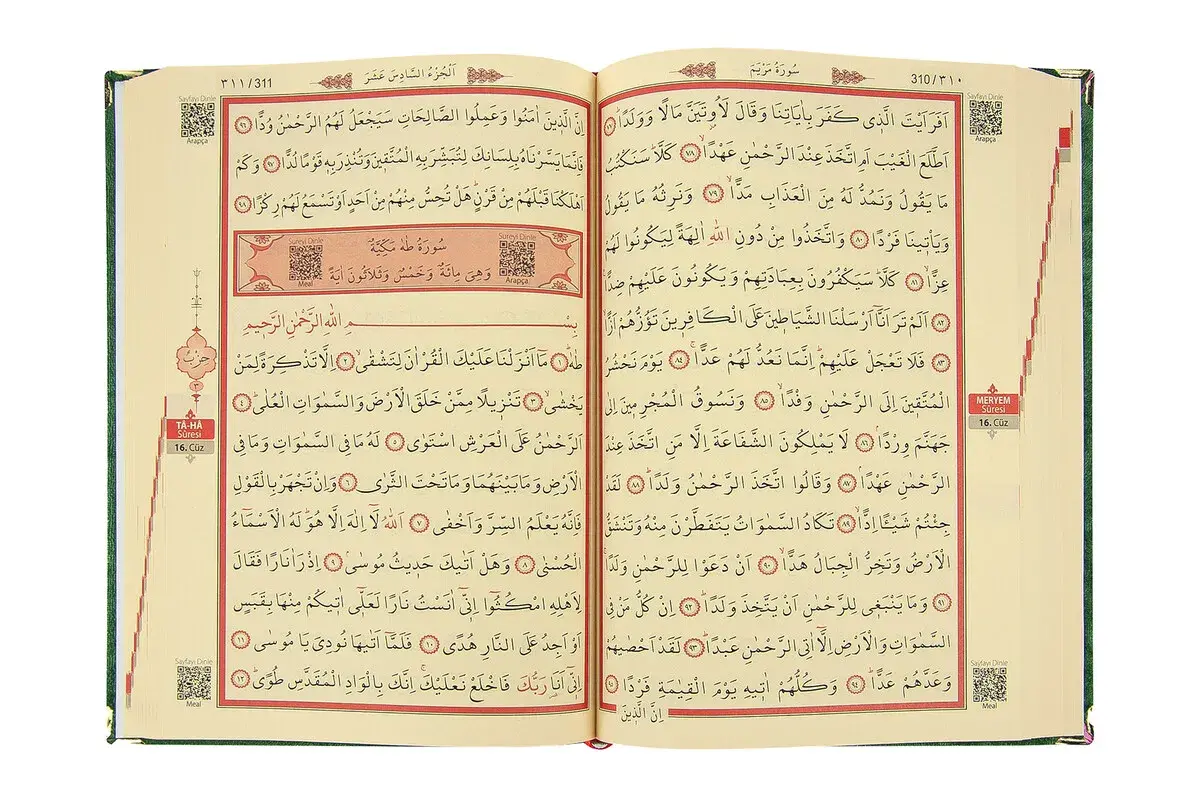 310/٣١٠
سُورَةُ مَرْيَمَ
Sayfayı Dinle
Arapça
اَفَرَاَيْتَ الَّذ۪ي كَفَرَ بِاٰيَاتِنَا وَقَالَ لَاُو۫تَيَنَّ مَالًا وَوَلَدًاۜ ﴿٧٧﴾
اَطَّلَعَ الْغَيْبَ اَمِ اتَّخَذَ عِنْدَ الرَّحْمٰنِ عَهْدًاۙ ﴿٧٨﴾ كَلَّاۜ سَنَكْتُبُ
مَا يَقُولُ وَنَمُدُّ لَهُ مِنَ الْعَذَابِ مَدًّاۙ ﴿٧٩﴾ وَنَرِثُهُ مَا يَقُولُ
وَيَأْت۪ينَا فَرْدًا ﴿٨٠﴾ وَاتَّخَذُوا مِنْ دُونِ اللّٰهِ اٰلِهَةً لِيَكُونُوا لَهُمْ
عِزًّاۙ ﴿٨١﴾ كَلَّاۜ سَيَكْفُرُونَ بِعِبَادَتِهِمْ وَيَكُونُونَ عَلَيْهِمْ ضِدًّا
﴿٨٢﴾ اَلَمْ تَرَ اَنَّٓا اَرْسَلْنَا الشَّيَاط۪ينَ عَلَى الْكَافِر۪ينَ تَؤُزُّهُمْ اَزًّاۙ
﴿٨٣﴾ فَلَا تَعْجَلْ عَلَيْهِمْۜ اِنَّمَا نَعُدُّ لَهُمْ عَدًّاۚ ﴿٨٤﴾ يَوْمَ نَحْشُرُ
الْمُتَّق۪ينَ اِلَى الرَّحْمٰنِ وَفْدًاۙ ﴿٨٥﴾ وَنَسُوقُ الْمُجْرِم۪ينَ اِلٰى
جَهَنَّمَ وِرْدًاۢ ﴿٨٦﴾ لَا يَمْلِكُونَ الشَّفَاعَةَ اِلَّا مَنِ اتَّخَذَ عِنْدَ
الرَّحْمٰنِ عَهْدًاۢ ﴿٨٧﴾ وَقَالُوا اتَّخَذَ الرَّحْمٰنُ وَلَدًاۜ ﴿٨٨﴾ لَقَدْ
جِئْتُمْ شَيْـًٔا اِدًّاۙ ﴿٨٩﴾ تَكَادُ السَّمٰوَاتُ يَتَفَطَّرْنَ مِنْهُ وَتَنْشَقُّ
الْاَرْضُ وَتَخِرُّ الْجِبَالُ هَدًّاۙ ﴿٩٠﴾ اَنْ دَعَوْا لِلرَّحْمٰنِ وَلَدًاۚ
﴿٩١﴾ وَمَا يَنْبَغ۪ي لِلرَّحْمٰنِ اَنْ يَتَّخِذَ وَلَدًاۜ ﴿٩٢﴾ اِنْ كُلُّ مَنْ فِي
السَّمٰوَاتِ وَالْاَرْضِ اِلَّٓا اٰتِي الرَّحْمٰنِ عَبْدًاۜ ﴿٩٣﴾ لَقَدْ اَحْصٰيهُمْ
وَعَدَّهُمْ عَدًّاۜ ﴿٩٤﴾ وَكُلُّهُمْ اٰت۪يهِ يَوْمَ الْقِيٰمَةِ فَرْدًا ﴿٩٥﴾
اِنَّ الَّذ۪ينَ
MERYEM
Sûresi
16. Cüz
Sayfayı Dinle
Meal
٣١١/311
اَلْجُزْءُ السَّادِسَ عَشَرَ
Sayfayı Dinle
Arapça
اِنَّ الَّذ۪ينَ اٰمَنُوا وَعَمِلُوا الصَّالِحَاتِ سَيَجْعَلُ لَهُمُ الرَّحْمٰنُ وُدًّا ﴿٩٦﴾
فَاِنَّمَا يَسَّرْنَاهُ بِلِسَانِكَ لِتُبَشِّرَ بِهِ الْمُتَّق۪ينَ وَتُنْذِرَ بِه۪ قَوْمًا لُدًّا ﴿٩٧﴾ وَكَمْ
اَهْلَكْنَا قَبْلَهُمْ مِنْ قَرْنٍۜ هَلْ تُحِسُّ مِنْهُمْ مِنْ اَحَدٍ اَوْ تَسْمَعُ لَهُمْ رِكْزًا ﴿٩٨﴾
Sureyi Dinle
Arapça
سُورَةُ طٰهٰ مَكِّيَّةٌ
وَهِيَ مِائَةٌ وَخَمْسٌ وَثَلَاثُونَ اٰيَةً
Sureyi Dinle
Meal
بِسْــــــمِ اللّٰهِ الرَّحْمٰنِ الرَّح۪يمِ
طٰهٰۜ ﴿١﴾ مَٓا اَنْزَلْنَا عَلَيْكَ الْقُرْاٰنَ لِتَشْقٰىۙ ﴿٢﴾ اِلَّا تَذْكِرَةً لِمَنْ
يَخْشٰىۙ ﴿٣﴾ تَنْز۪يلًا مِمَّنْ خَلَقَ الْاَرْضَ وَالسَّمٰوَاتِ الْعُلٰىۜ ﴿٤﴾
اَلرَّحْمٰنُ عَلَى الْعَرْشِ اسْتَوٰى ﴿٥﴾ لَهُ مَا فِي السَّمٰوَاتِ وَمَا فِي
الْاَرْضِ وَمَا بَيْنَهُمَا وَمَا تَحْتَ الثَّرٰى ﴿٦﴾ وَاِنْ تَجْهَرْ بِالْقَوْلِ
فَاِنَّهُ يَعْلَمُ السِّرَّ وَاَخْفٰى ﴿٧﴾ اَللّٰهُ لَٓا اِلٰهَ اِلَّا هُوَۜ لَهُ الْاَسْمَٓاءُ
الْحُسْنٰى ﴿٨﴾ وَهَلْ اَتٰيكَ حَد۪يثُ مُوسٰىۢ ﴿٩﴾ اِذْ رَاٰ نَارًا فَقَالَ
لِاَهْلِهِ امْكُثُٓوا اِنّ۪ٓي اٰنَسْتُ نَارًا لَعَلّ۪ٓي اٰت۪يكُمْ مِنْهَا بِقَبَسٍ
اَوْ اَجِدُ عَلَى النَّارِ هُدًى ﴿١٠﴾ فَلَمَّٓا اَتٰيهَا نُودِيَ يَا مُوسٰى ﴿١١﴾
اِنّ۪ٓي اَنَا۬ رَبُّكَ فَاخْلَعْ نَعْلَيْكَۚ اِنَّكَ بِالْوَادِ الْمُقَدَّسِ طُوًىۜ ﴿١٢﴾
حزب
٣
TÂ-HÂ
Sûresi
16. Cüz
Sayfayı Dinle
Meal